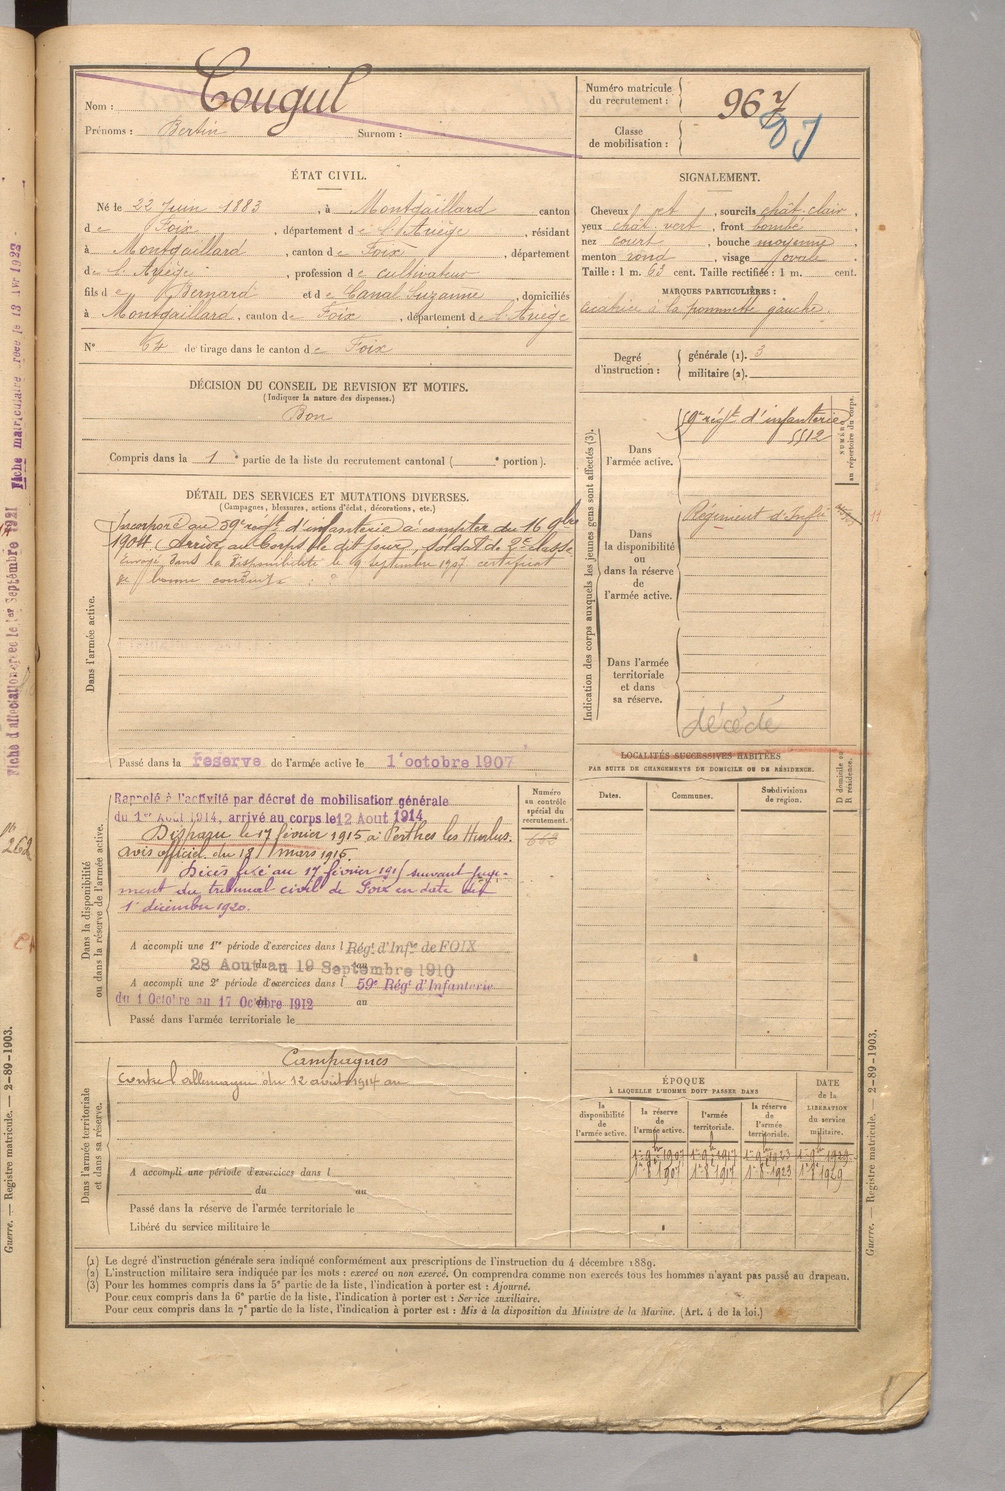 Nom : Cougul
Prénoms : Bertin Surnom :
Numéro matricule du recrutement : 967
Classe de mobilisation :
ÉTAT CIVIL.
Né le 22 Juin 1883, à Montgaillard canton
de Foix, département de l'Ariège, résidant
à Montgaillard, canton de Foix, département
de l'Ariège, profession de cultivateur
fils de Bernard et de Canal Suzanne, domiciliés
à Montgaillard, canton de Foix, département de l'Ariège
N° 64 de tirage dans le canton de Foix
DÉCISION DU CONSEIL DE REVISION ET MOTIFS.
(Indiquer la nature des dispenses.)
Bon
Compris dans la 1e partie de la liste du recrutement cantonal ( e portion).
SIGNALEMENT.
Cheveux et, sourcils chât-clair,
yeux chât. vert, front bombé,
nez court, bouche moyenne,
menton rond, visage ovale
Taille : 1 m. 63 cent. Taille rectifiée : 1 m. cent.
MARQUES PARTICULIÈRES :
cicatrice à la pommette gauche.
Degré d'instruction :
générale (1). 3
militaire (2).
DÉTAIL DES SERVICES ET MUTATIONS DIVERSES.
(Campagnes, blessures, actions d'éclat, décorations, etc.)
Dans l'armée active.
Incorporé au 59e régt d'infanterie à compter du 16 9bre
1904. Arrivé au Corps le dit jour, soldat de 2e classe
Envoyé dans la disponibilité le 9 septembre 1907 certificat
de bonne conduite
Passé dans la réserve de l'armée active le 1er octobre 1907
Indication des corps auxquels les jeunes gens sont affectés (3).
NUMÉRO au répertoire du corps.
Dans l'armée active.
59e régt d'infanterie
5512
Dans la disponibilité ou dans la réserve de l'armée active.
Régiment d'Infie
Dans l'armée territoriale et dans sa réserve.
décédé
LOCALITÉS SUCCESSIVES HABITÉES
PAR SUITE DE CHANGEMENTS DE DOMICILE OU DE RÉSIDENCE.
Dates. Communes. Subdivisions de région. D domicile ou R résidence.
Dans la disponibilité ou dans la réserve de l'armée active.
Numéro au contrôle spécial du recrutement.
Rappelé à l'activité par décret de mobilisation générale
du 1er Aout 1914, arrivé au corps le 12 Aout 1914
Disparu le 17 février 1915 à Perthes les Hurlus.
Avis officiel du 18 mars 1915.
Décès fixé au 17 février 1915 suivant juge-
ment du tribunal civil de Foix en date du
1er décembre 1920.
A accompli une 1re période d'exercices dans l Rég. d'Infie de FOIX
28 Aout du au 19 Septembre 1910 au
A accompli une 2e période d'exercices dans l 59e Rég. d'Infanterie
du 1 Octobre au 17 Octobre 1912 au
Passé dans l'armée territoriale le
Dans l'armée territoriale et dans sa réserve.
Campagnes
contre l'allemagne du 12 août 1914 au
A accompli une période d'exercices dans l
du au
Passé dans la réserve de l'armée territoriale le
Libéré du service militaire le
ÉPOQUE
À LAQUELLE L'HOMME DOIT PASSER DANS
DATE de la LIBÉRATION du service militaire.
la disponibilité de l'armée active. la réserve de l'armée active. l'armée territoriale. la réserve de l'armée territoriale.
(1) Le degré d'instruction générale sera indiqué conformément aux prescriptions de l'instruction du 4 décembre 1889.
(2) L'instruction militaire sera indiquée par les mots : exercé ou non exercé. On comprendra comme non exercés tous les hommes n'ayant pas passé au drapeau.
(3) Pour les hommes compris dans la 5e partie de la liste, l'indication à porter est : Ajourné.
Pour ceux compris dans la 6e partie de la liste, l'indication à porter est : Service auxiliaire.
Pour ceux compris dans la 7e partie de la liste, l'indication à porter est : Mis à la disposition du Ministre de la Marine. (Art. 4 de la loi.)
Guerre. — Registre matricule. — 2-89-1903.
Guerre. — Registre matricule. — 2-89-1903.